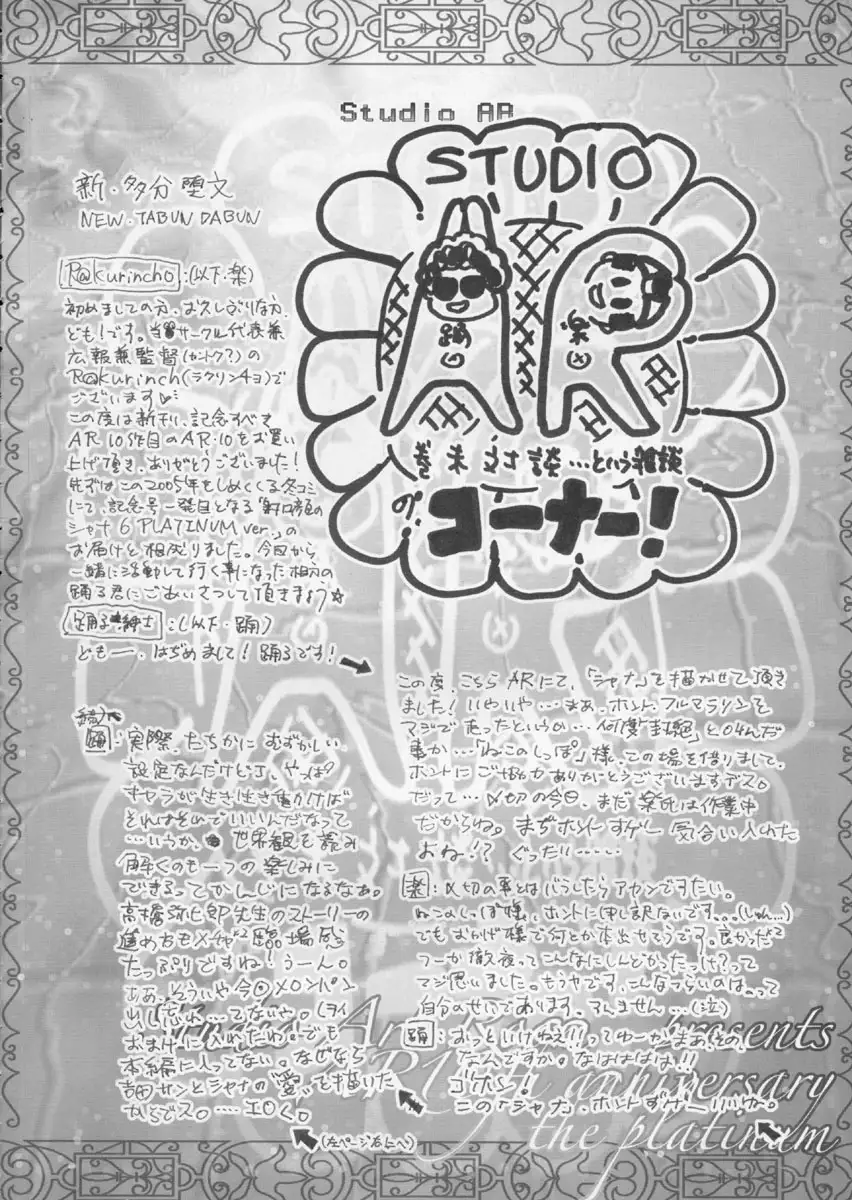 Studio AR
STUDIO
AR
踊
楽
巻末対談…という雑談
の、コーナー!
新・多分堕文
NEW・TABUN DABUN
R@kurincho:(以下・楽)
初めましての方、お久しぶりな方、
ども!です。当サークル代表兼
広報兼監督(セントク?)の
R@kurinch(ラクリンチョ)で
ございます
この度は新刊、記念すべき
AR 10作目のAR・10をお買い
上げ頂き、ありがとうございました!
先ずはこの2005年をしめくくる冬コミ
にて、記念号一発目となる「射口顔の
シャナ6 PLATINUM ver.」の
お届けと相成りました。今回から
一緒に活動して行く事になった相方の
踊る君にごあいさつして頂きましょう☆
踊る紳士:(以下・踊)
ども一、はぢめまして!踊るです!
この度、こちらARにて、「シャナ」を描かせて頂き
ました!いやいや…まあ、ホント、フルマラソンを
マジで走ったというか…何度「封絶」と叫んだ
事か…「ねこのしっぽ」様、この場を借りまして。
ホントにご協力ありがとうございますデス。
だって…〆切の今日、まだ楽氏は作業中
だからね。まぢホントすげー気合い入れた
おね!?ぐっだり……
楽:〆切の事とはバラしたらアカンですたい。
ねこのしっぽ様、ホントに申し訳ないです…(しゅん…)
でもおかげ様で何とか本出せそうです。良かった
フーか徹夜ってこんなにしんどかったっけ?って
マジ思いました。もうヤです、こんなつらいのは…って
自分のせいであります。すんません…(泣)
踊:おっといけねぇ!!ってゆーかまあ、その、
なんですか。なはははは!!
ゴホン!
この「シャナ」、ホントすげー
踊:実際、たちかにむずかしい
設定なんだけどさ、やっぱ
キャラが生き生き動かけば
それはそのでいいんだなって
…いうか、世界観を読み
解くのも一つの楽しみに
できるってかんじになるなぁ。
高橋弥七郎先生のストーリーの
進め方もメチャ臨場感
たっぷりですね!うーん。
ああ、そういや今回メロンパン
出し忘れ…てないや。
おまけに入れたわ。でも
本編に入ってない。なぜなら
吉田サンとシャナの"愛"を描いた
からでス。…エロく。
(左ページ右上へ)
presents
anniversary
the platinum